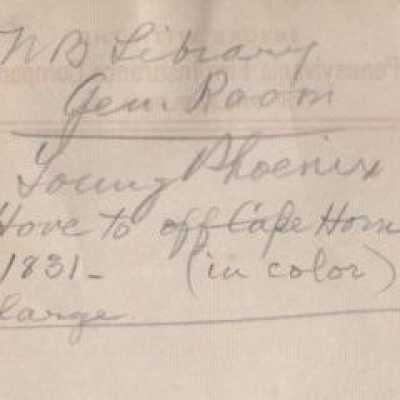 N B Library
Gen. Room
Young Phoenix
Hove to off Cape Horn
1831- (in color)
large